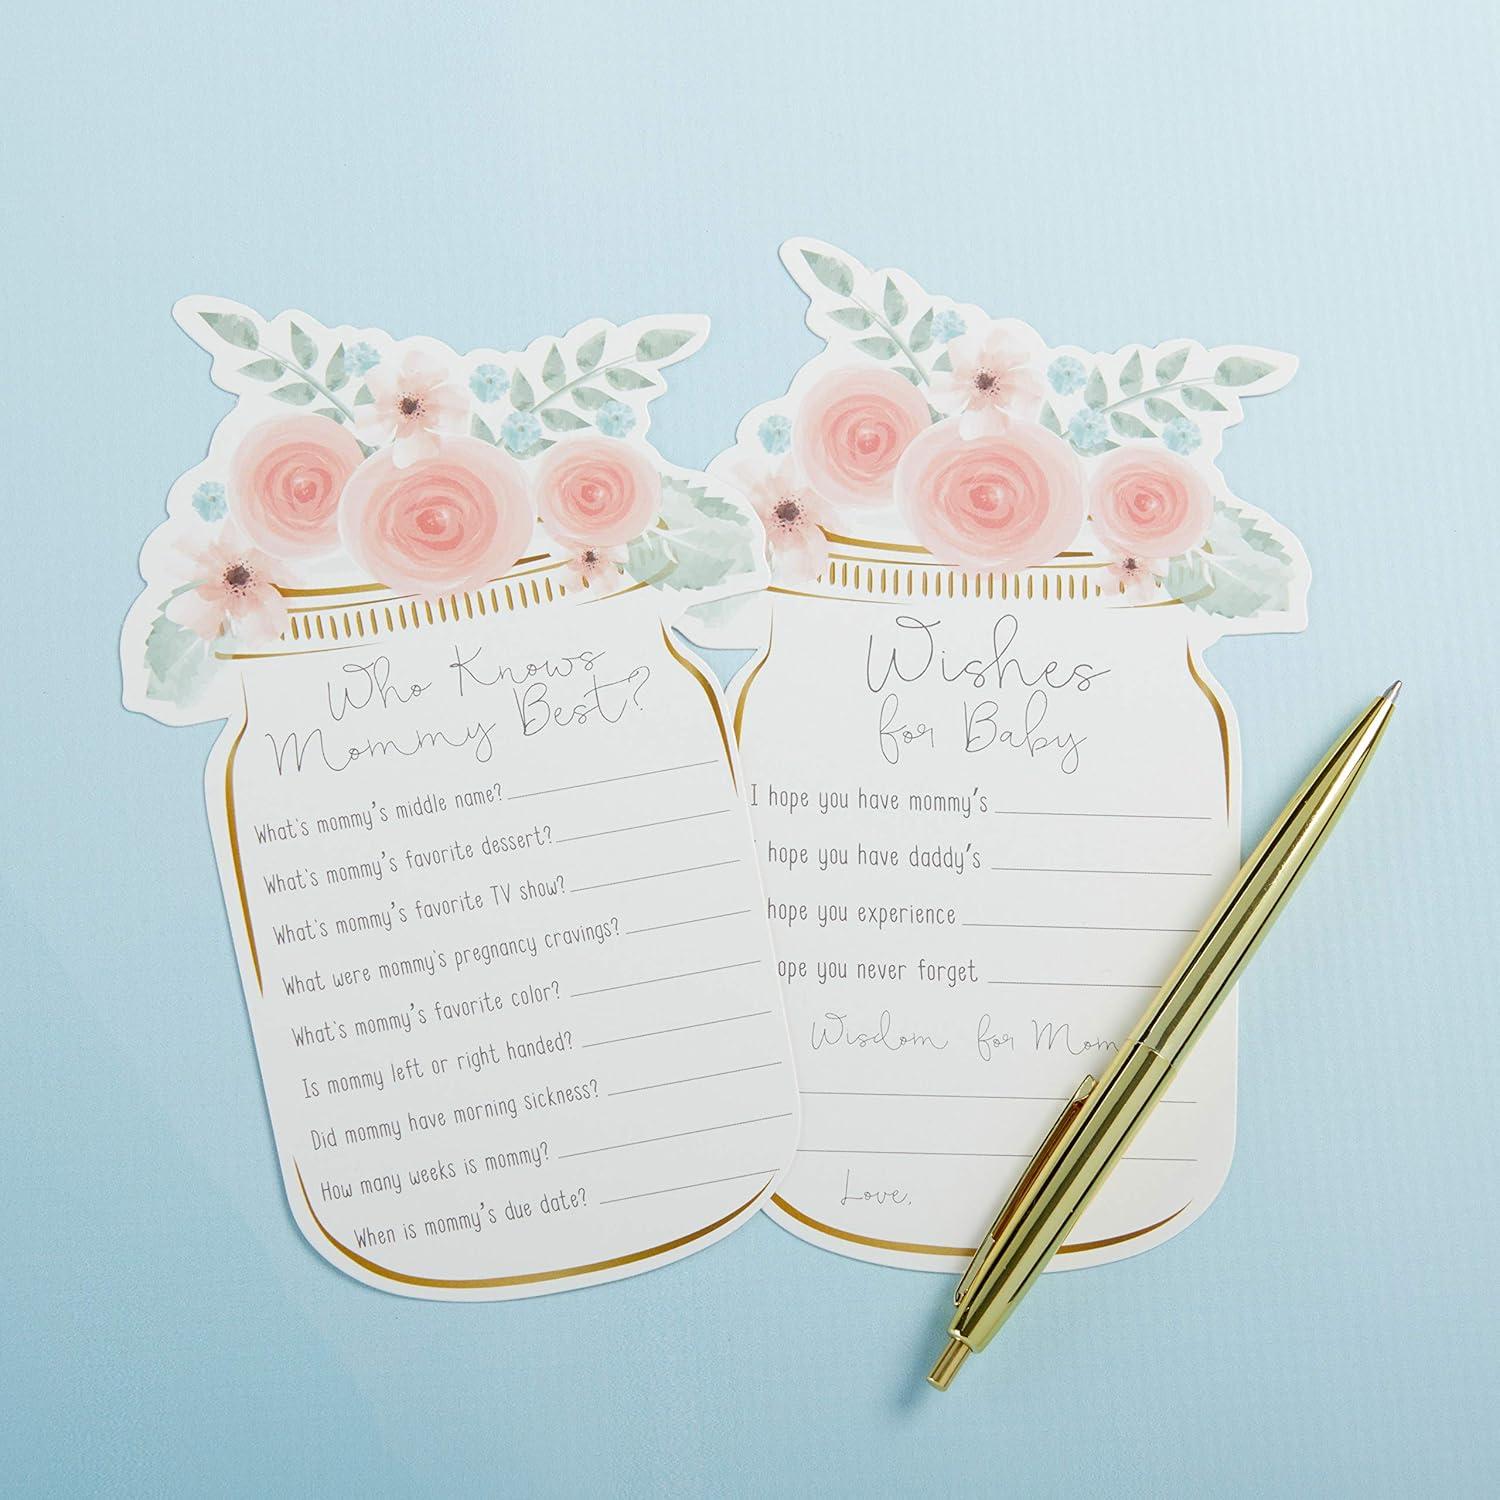 Who Knows
Mommy Best?
What's mommy's middle name?
What's mommy's favorite dessert?
What's mommy's favorite TV show?
What were mommy's pregnancy cravings?
What's mommy's favorite color?
Is mommy left or right handed?
Did mommy have morning sickness?
How many weeks is mommy?
When is mommy's due date?
Wishes
for Baby
I hope you have mommy's
hope you have daddy's
hope you experience
ope you never forget
Wisdom for Mom
Love,